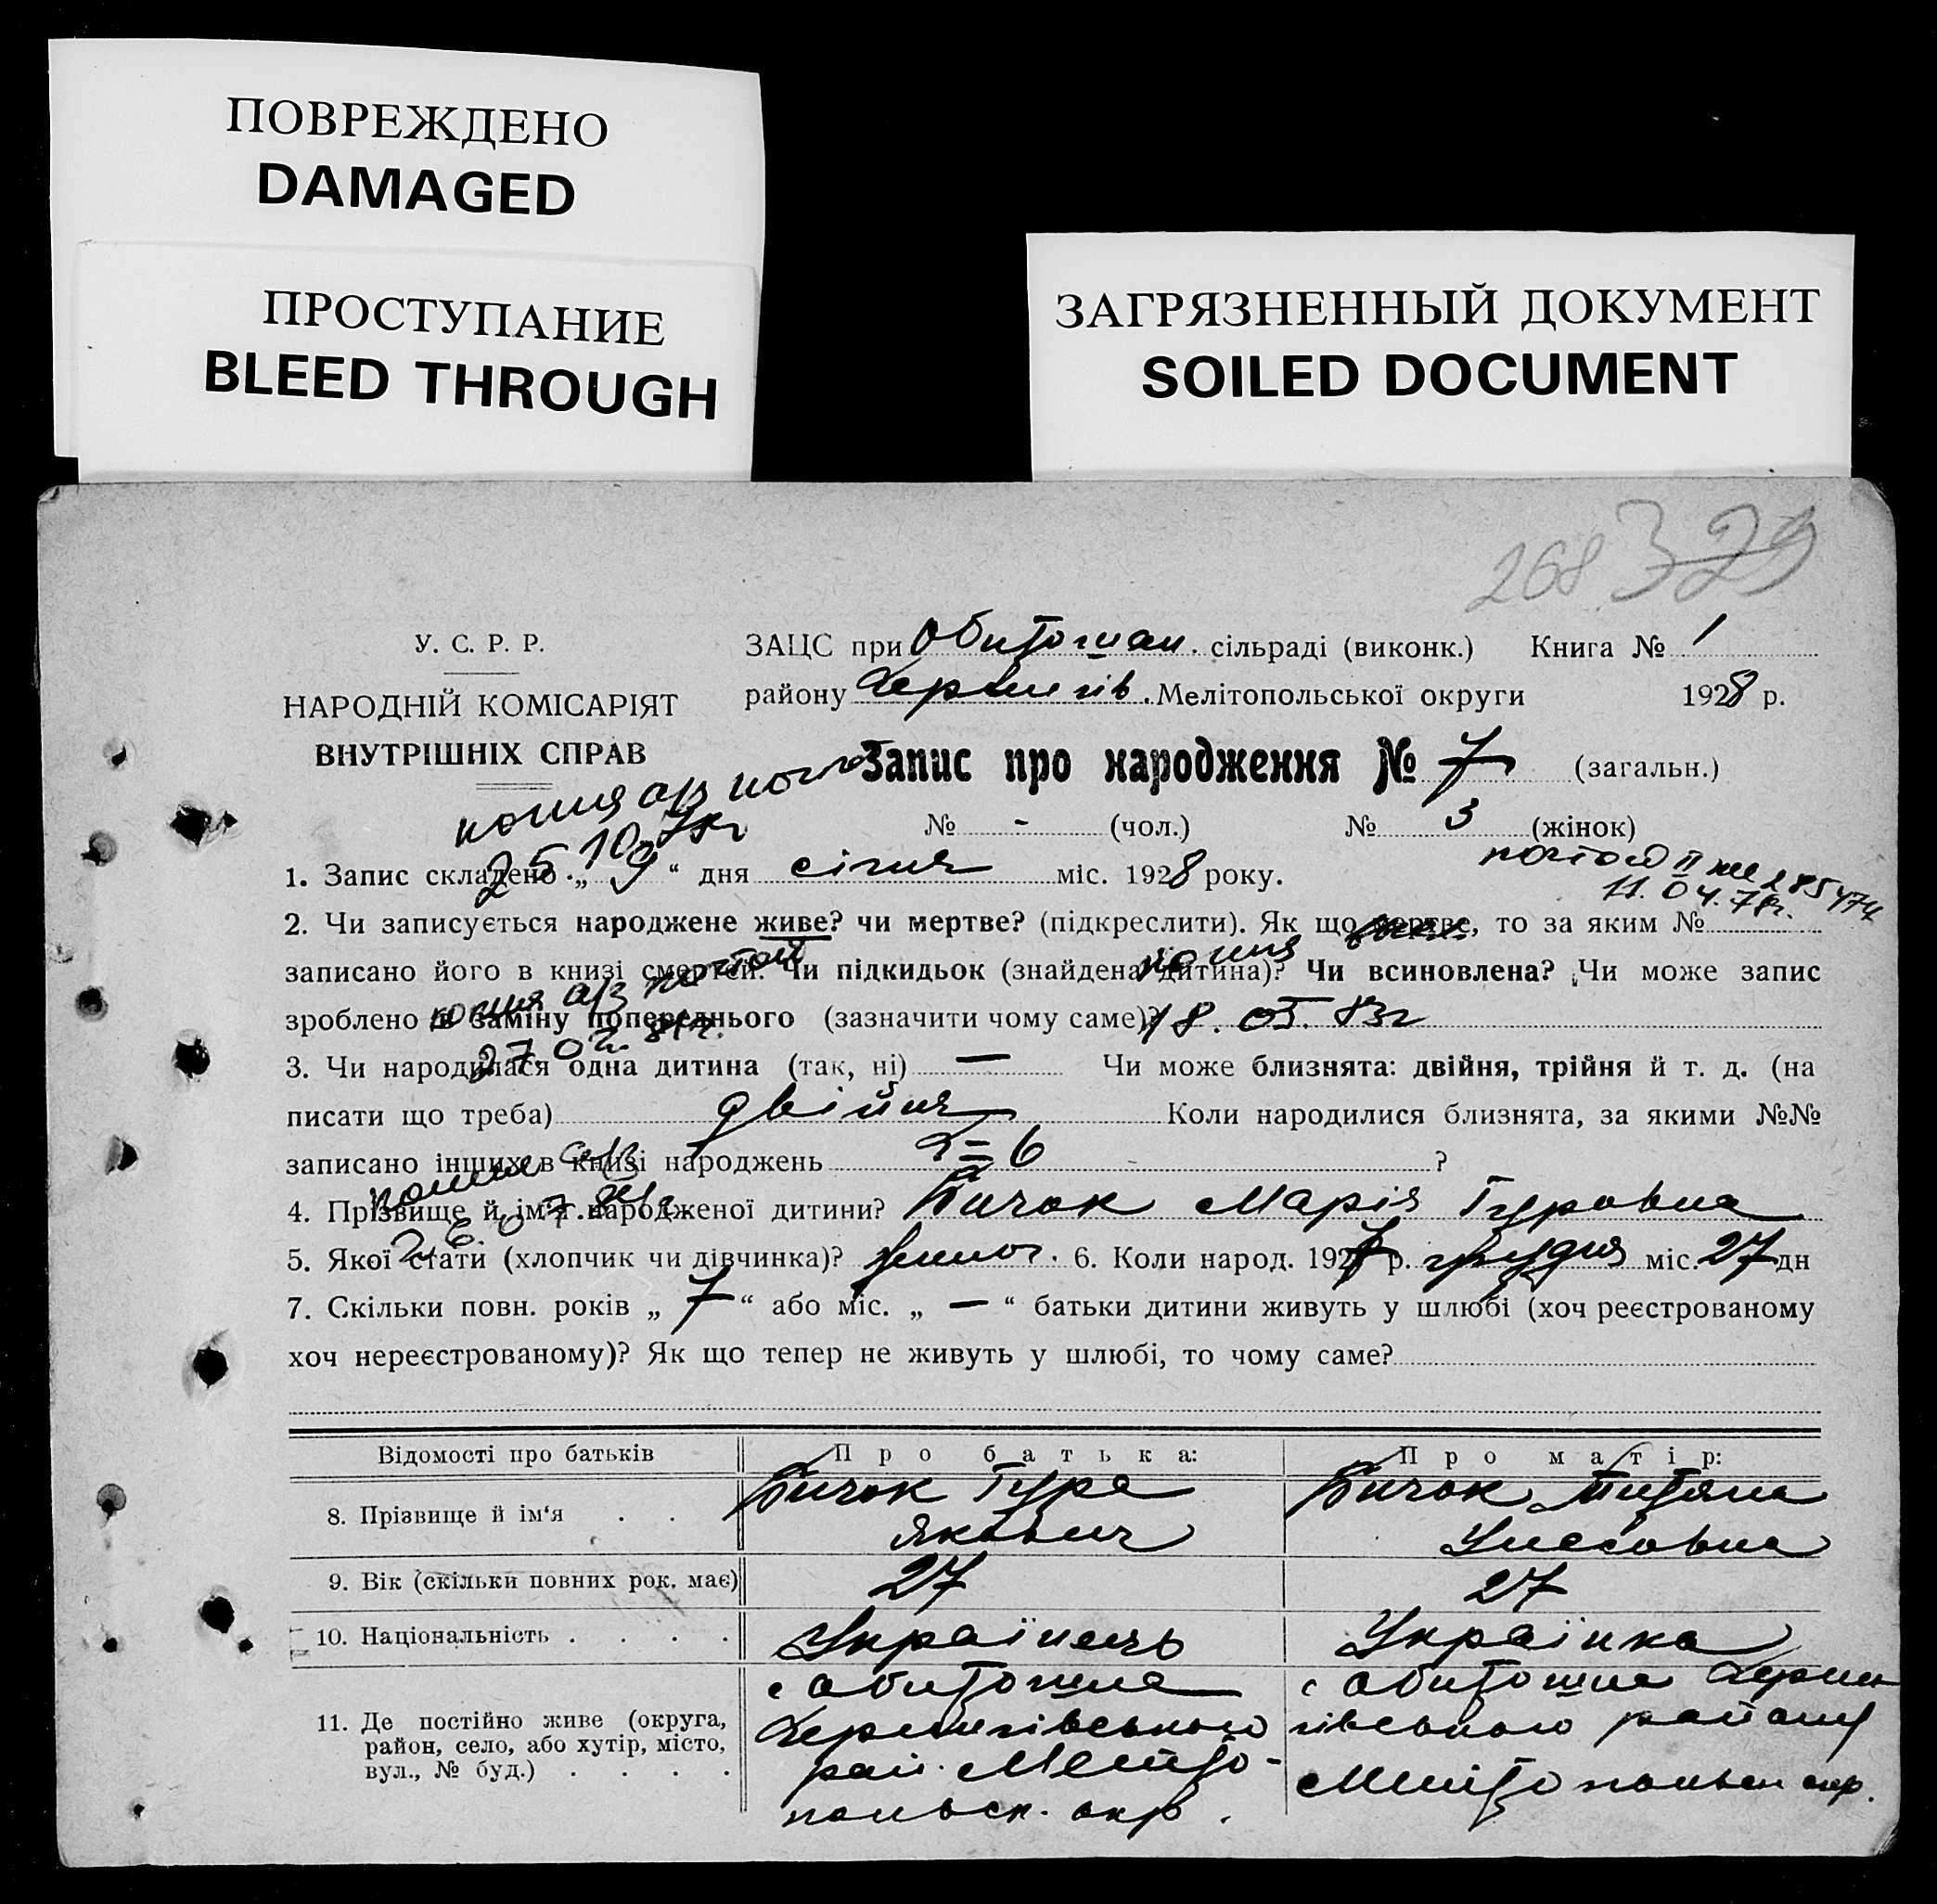 ПОВРЕЖДЕНО
DAMAGED
ПРОСТУПАНИЕ
BLEED THROUGH
ЗАГРЯЗНЕННЫЙ ДОКУМЕНТ
SOILED DOCUMENT
268 329
У. С. Р. Р.
НАРОДНІЙ КОМІСАРІЯТ
ВНУТРІШНІХ СПРАВ
ЗАЦС при Обиточан. сільраді (виконк.) Книга № 1
району Чернигів. Мелітопольської округи 1928 р.
Запис про народження № 7 (загальн.)
копія а/з
25.10.
№ - (чол.) № 3 (жінок)
1. Запис складено „ 9 “ дня січня міс. 1928 року.
11.04.78г.
2. Чи записується народжене живе? чи мертве? (підкреслити). Як що мертве, то за яким №
записано його в книзі смертей. Чи підкидьок (знайдена дитина)? Чи всиновлена? Чи може запис
копія
зроблено в заміну попереднього (зазначити чому саме)? 18. 05. 83г
копія а/з почтой
3. Чи народилася одна дитина (так, ні) — Чи може близнята: двійня, трійня й т. д. (на
писати що треба) двійня Коли народилися близнята, за якими №№
записано інших в книзі народжень 6 ?
копія а/з
4. Прізвище й ім'я народженої дитини? Бичок Марія Гуровна
5. Якої стати (хлопчик чи дівчинка)? жіноч. 6. Коли народ. 1927 р. грудня міс. 27 дн
7. Скільки повн. років „ 7 “ або міс. „ — “ батьки дитини живуть у шлюбі (хоч реєстрованому
хоч нереєстрованому)? Як що тепер не живуть у шлюбі, то чому саме?
Відомості про батьків Про батька: Про матір:
8. Прізвище й ім‘я . . Бичок Гура Якович Бичок
9. Вік (скільки повних рок. має) 27 27
10. Національність . . . . Українець Українка
11. Де постійно живе (округа,
район, село, або хутір, місто,
вул., № буд.) . . . .
с Обиточна
Чернигівського
рай. Меліто-
польск. окр.
с Обиточна Черни
гівського району
Мелітопольск окр.